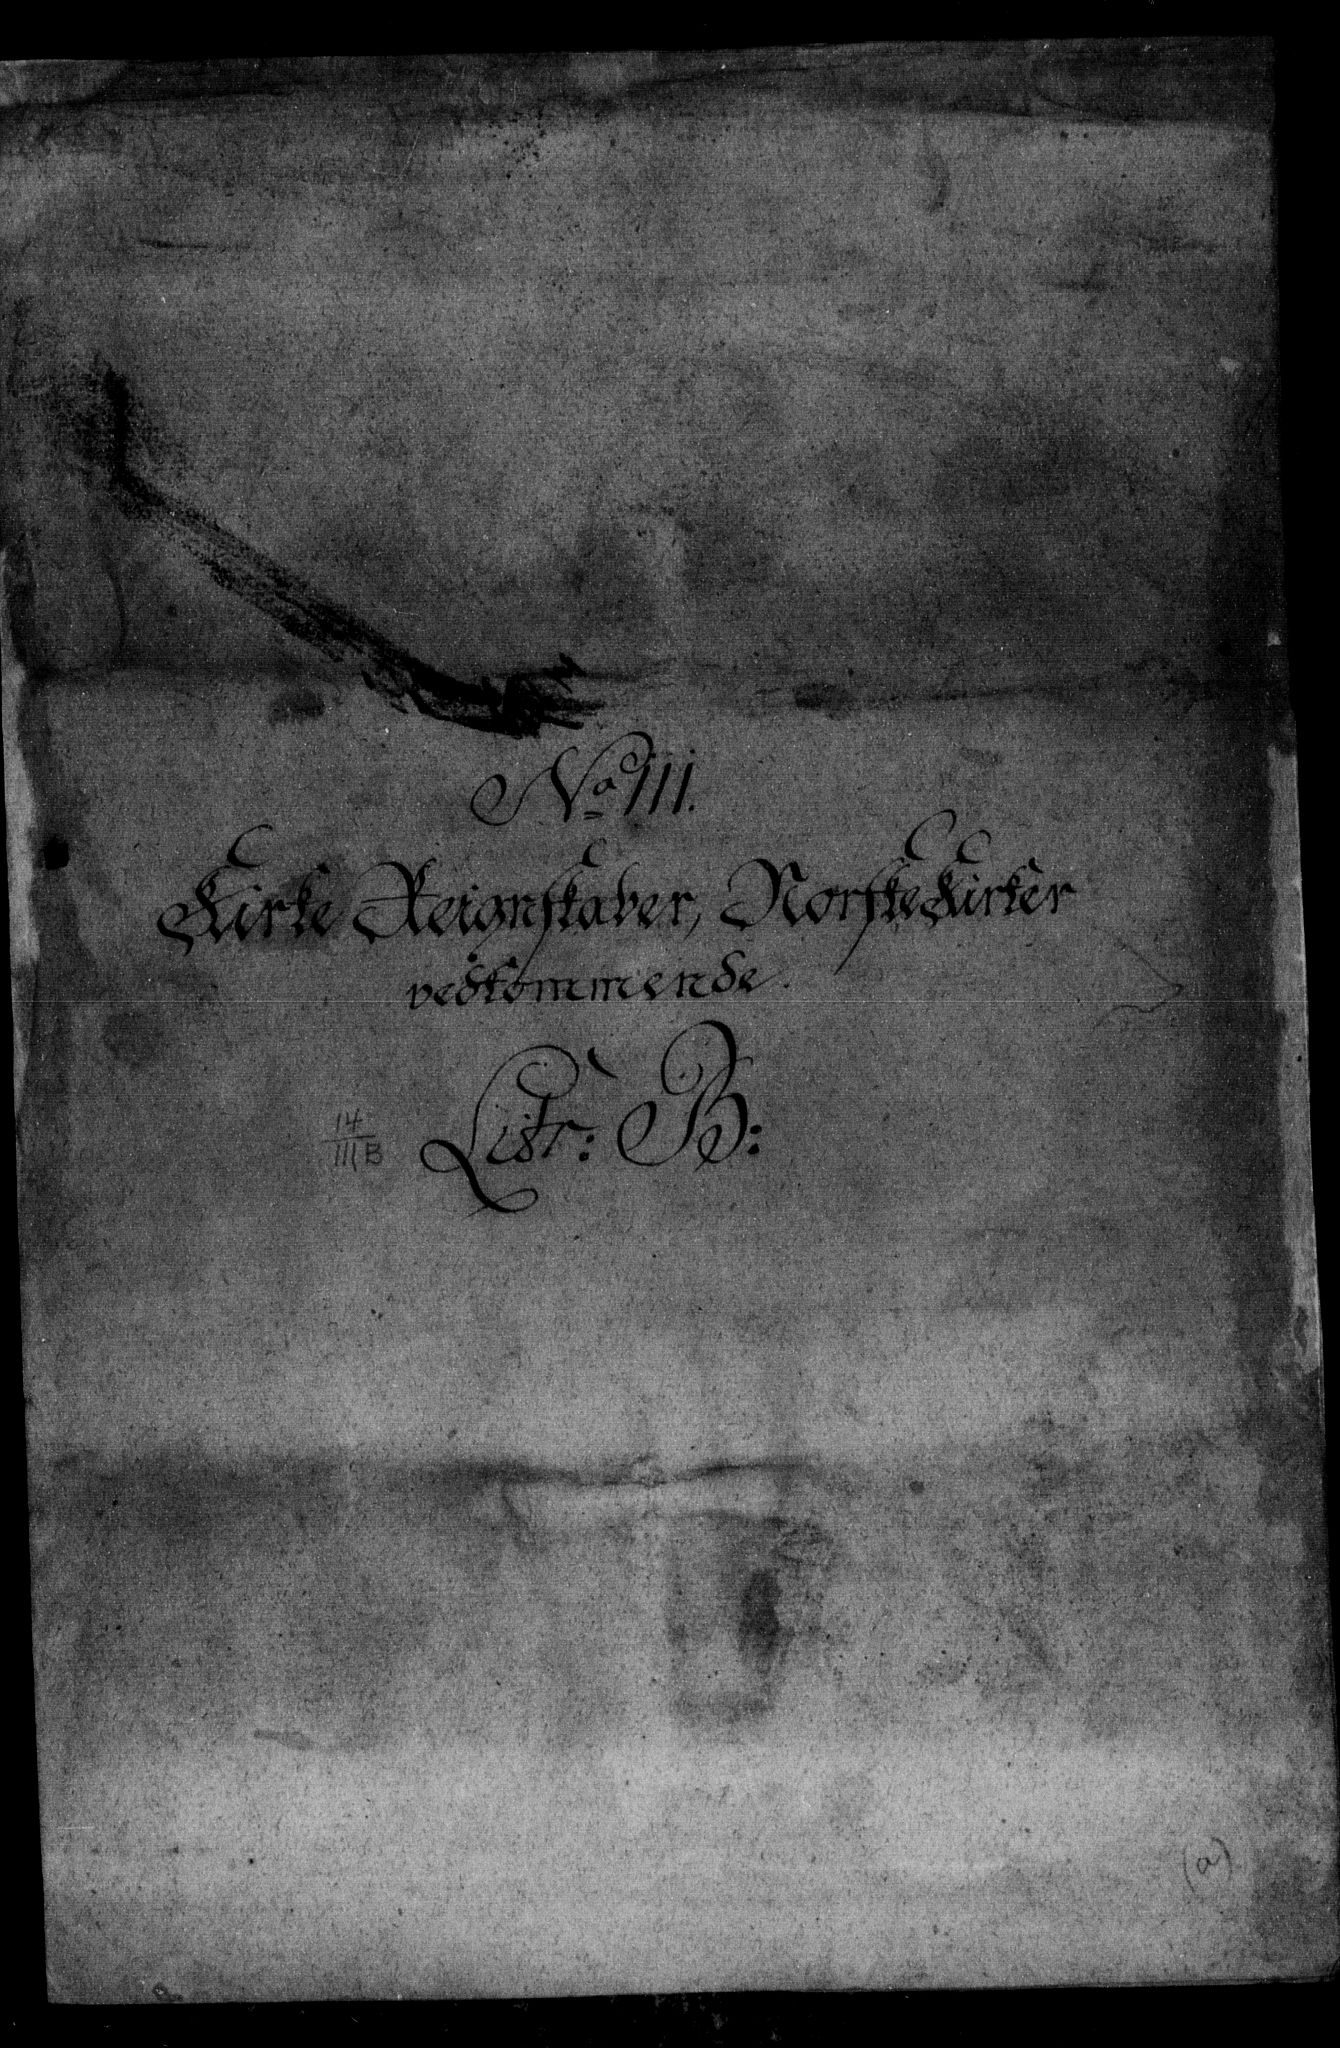 No III.
Kirke Reignskaber, Norske Kirker
vedkommende.
Litr: B:
14
III B
(a)